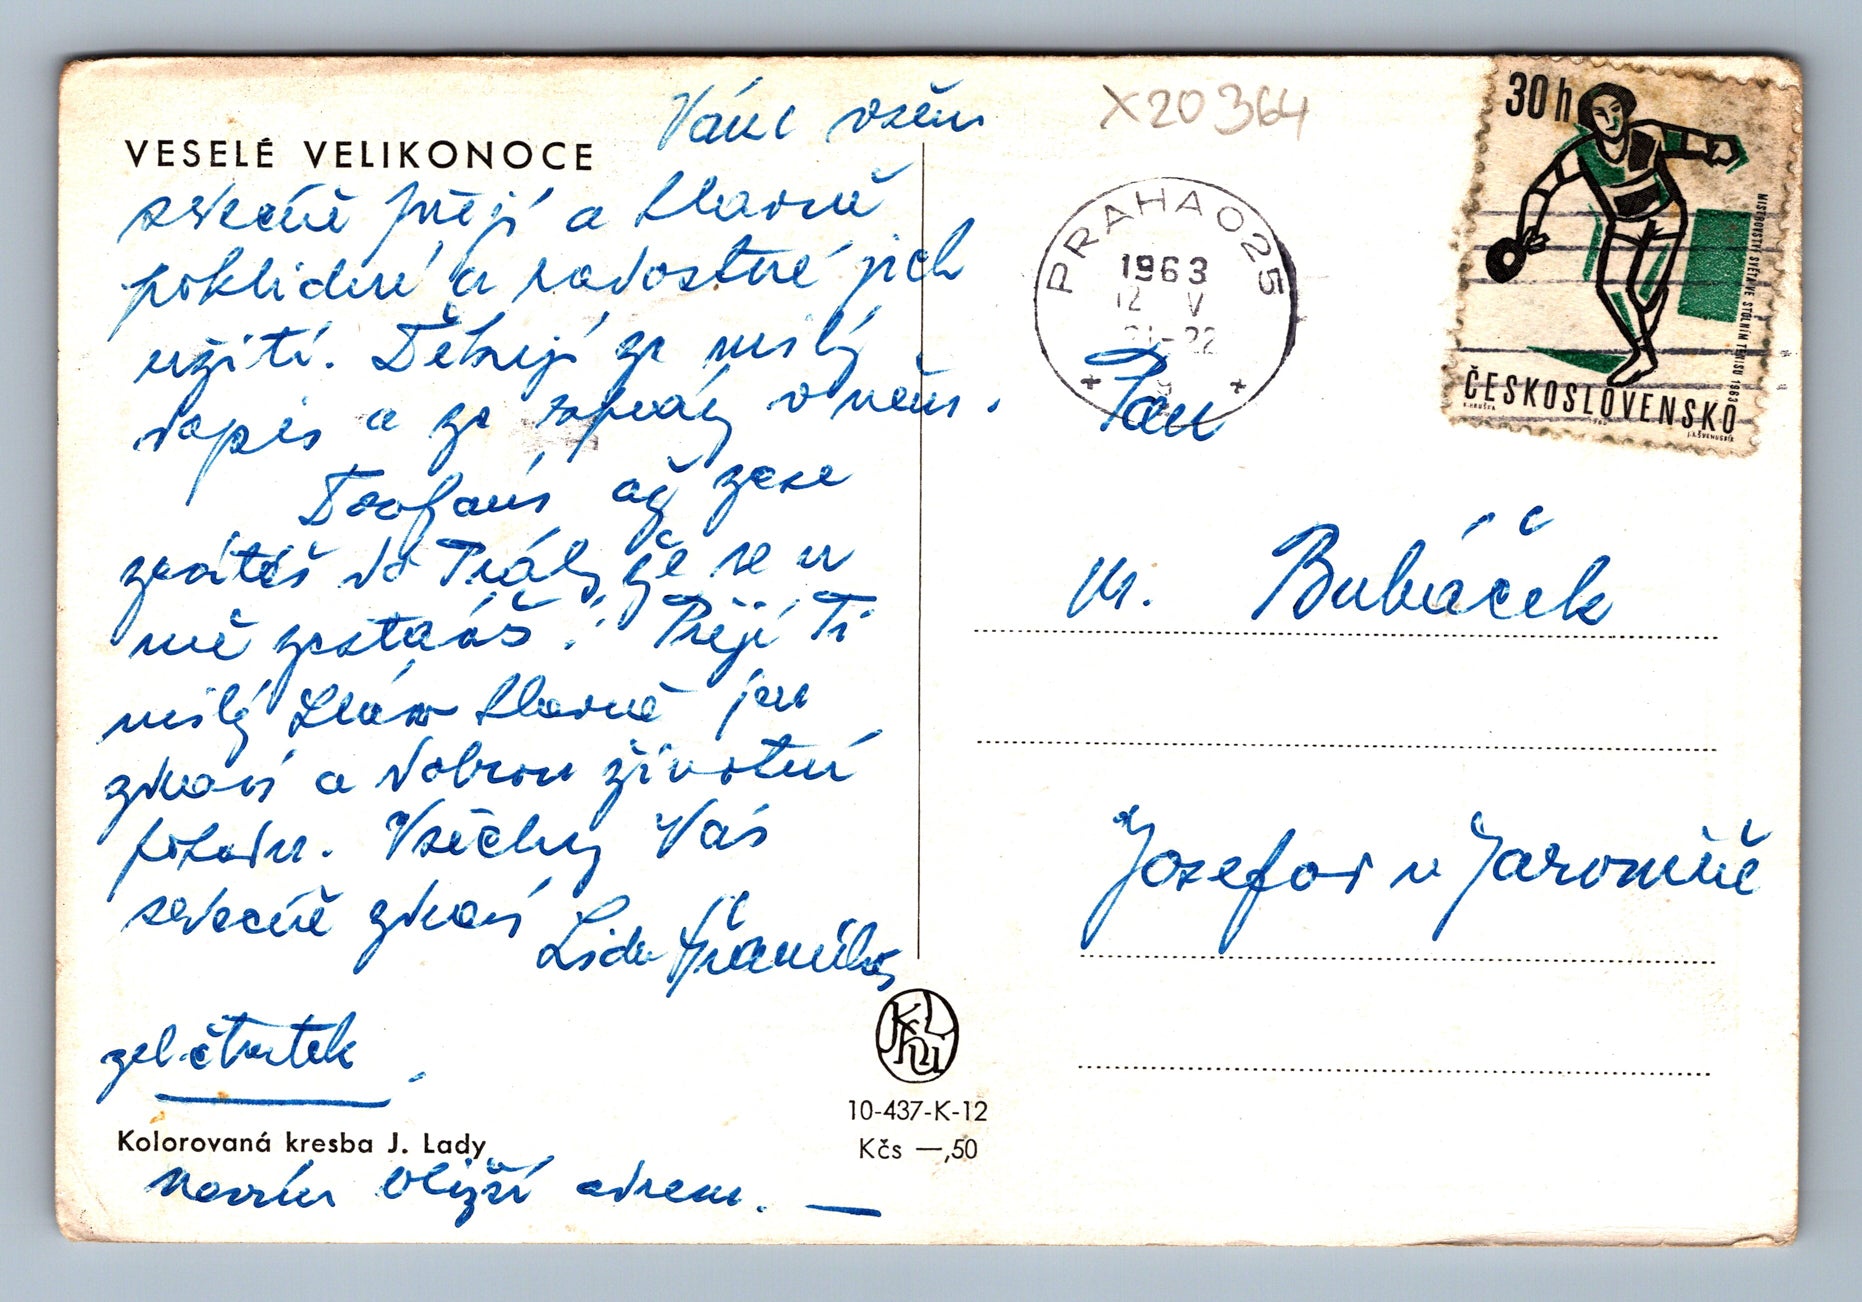 VESELÉ VELIKONOCE
Vám všem
srdečně přeji a hlavně
poklidné a radostné jich
užití. Děkuji za milý
dopis a za zprávy v něm.
Doufám, až zase
zavítáš do Prahy že se u
mě zastavíš! Přeji Ti
milý hlavně jen
zdraví a dobrou životní
pohodu. Všechny Vás
srdečně zdraví
Lida
zel. čtvrtek
Kolorovaná kresba J. Lady
nevím bližší adresu.
10-437-K-12
Kčs —,50
X20364
PRAHA 025
1963
12 V
-22
30 h
MISTROVSTVÍ SVĚTA VE STOLNÍM TENISU 1963
ČESKOSLOVENSKO
Pan
M. Bubáček
Josefov u Jaroměře